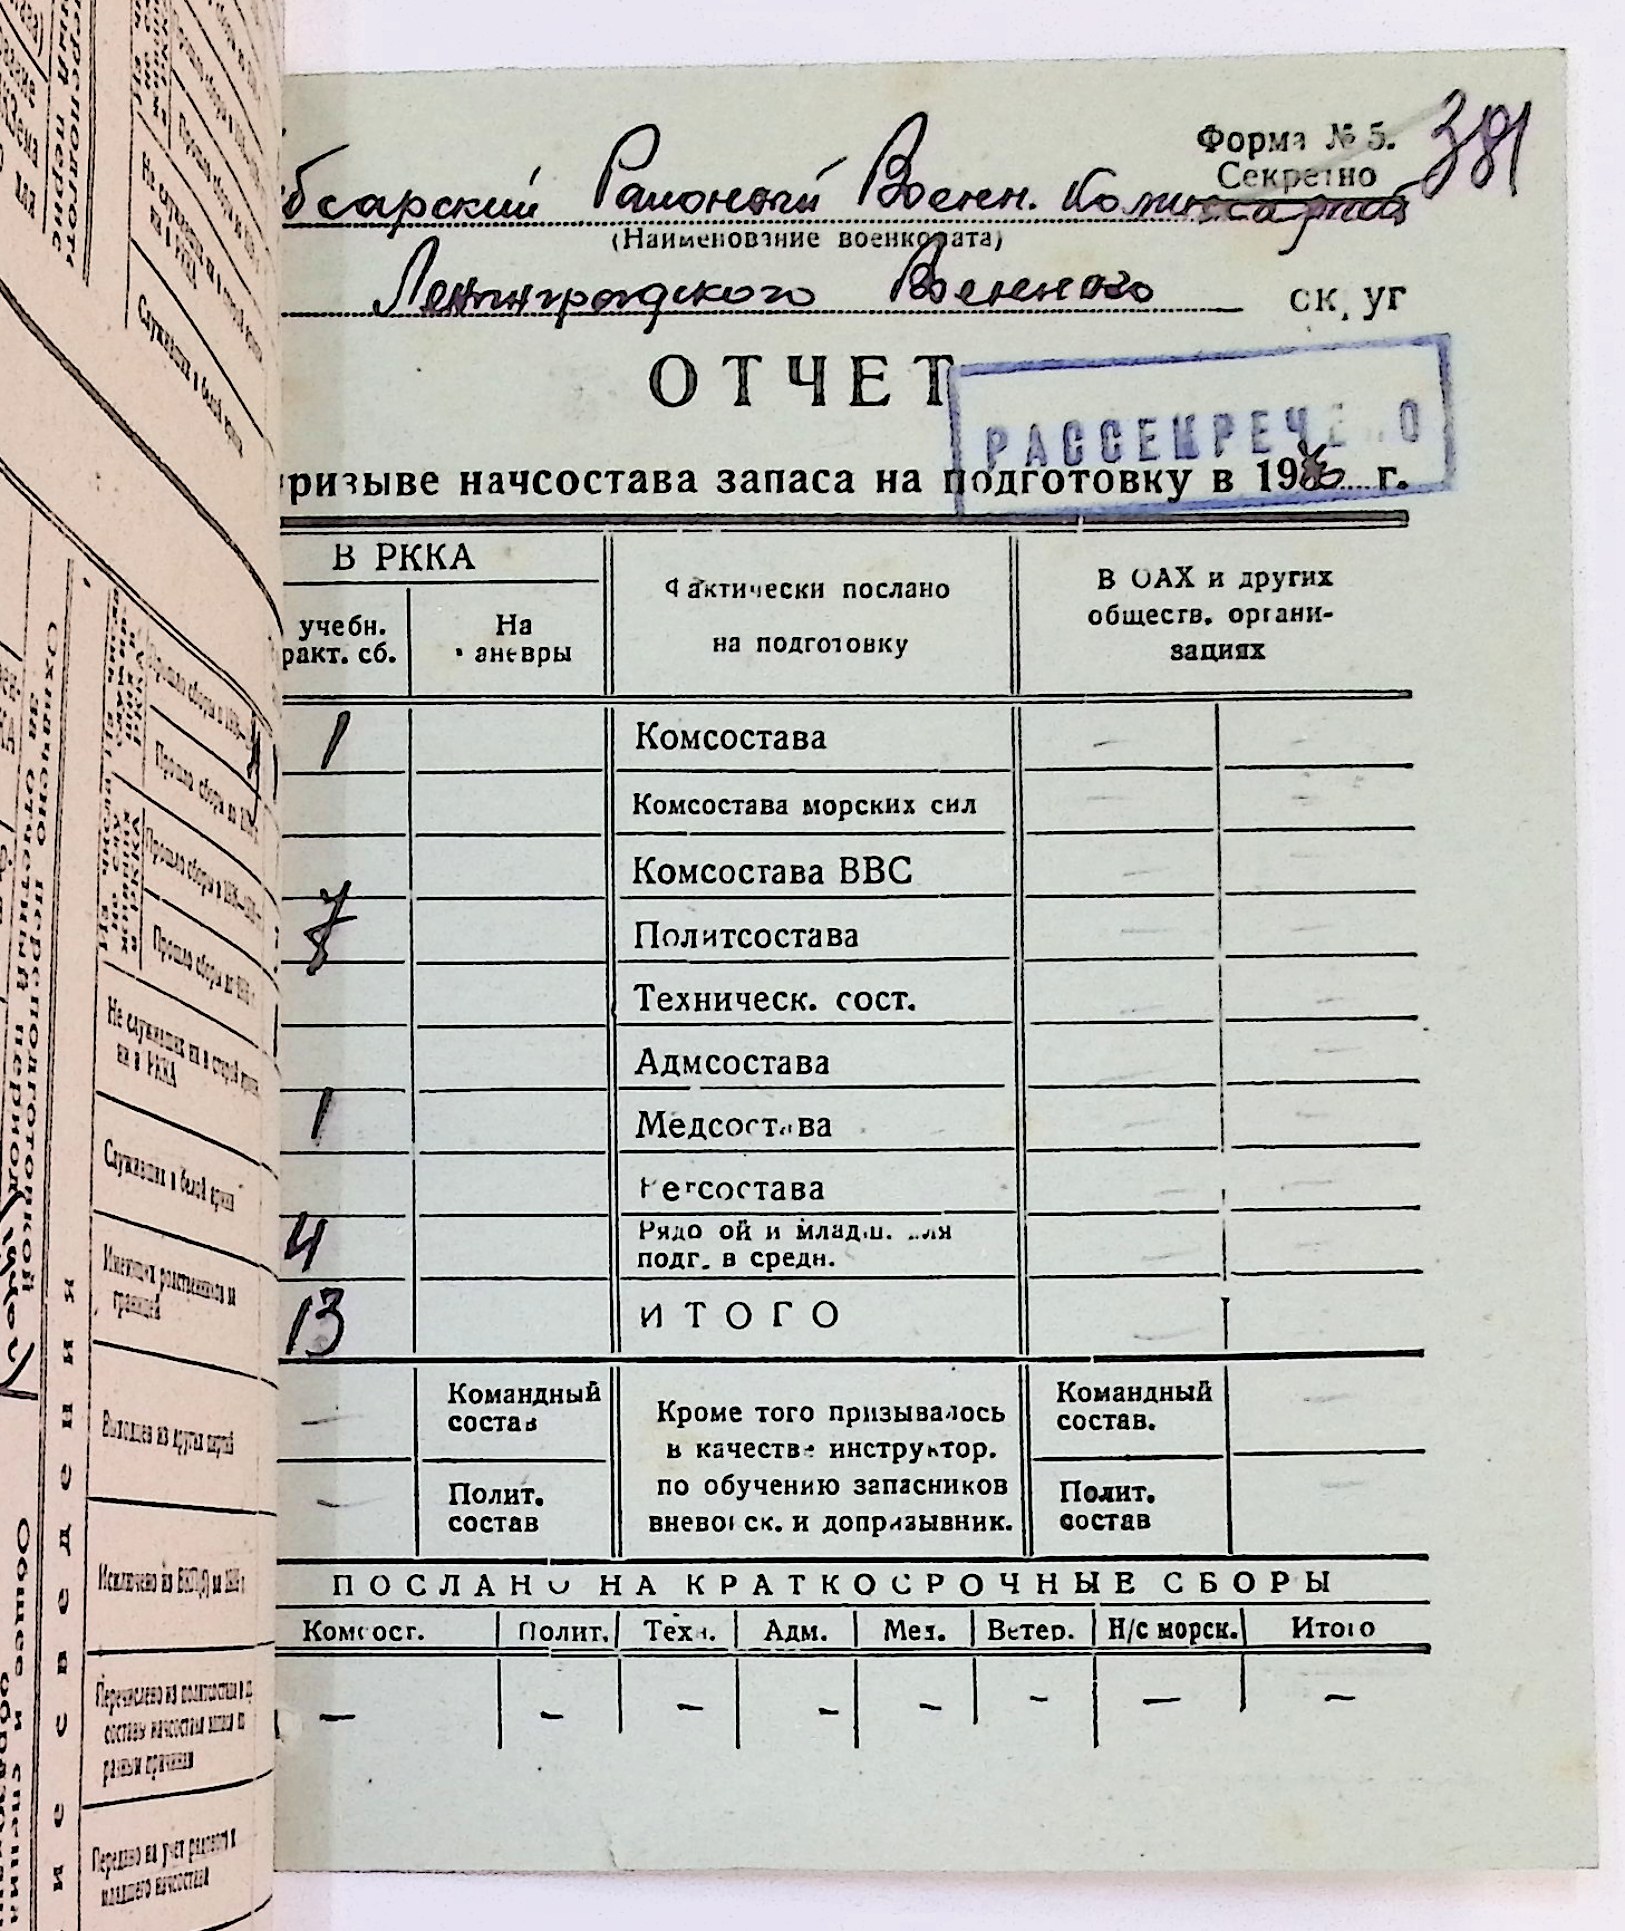 Форма № 5.
381
Секретно
бсарский Районный Военн. Комиссариат
(Наименование военкомата)
Ленинградского Военного ок, уг
ОТЧЕТ
РАССЕКРЕЧЕНО
призыве начсостава запаса на подготовку в 19 г.
В РККА
Фактически послано
на подготовку
В ОАХ и других
обществ. органи-
зациях
учебн.
ракт. сб.
На
маневры
1 Комсостава —
Комсостава морских сил —
Комсостава ВВС —
7 Политсостава —
Техническ. сост. —
Адмсостава —
1 Медсостава —
Ветсостава —
4 Рядовой и младш. для
подг. в средн.
13 ИТОГО —
— Командный
состав
— Полит.
состав
Кроме того призывалось
в качестве инструктор.
по обучению запасников
вневойск. и допризывник.
Командный
состав. —
Полит.
состав —
ПОСЛАНО НА КРАТКОСРОЧНЫЕ СБОРЫ
Комсост. Полит. Техн. Адм. Мед. Ветер. Н/с морск. Итого
— — — — — — — —
Не служивших ни в старой армии
ни в РККА
Служивших в белой армии
Прошло сборы до
Не служивших ни в старой армии
ни в РККА
Служивших в белой армии
Имеющих родственников за
границей
Выходцев из других партий
Исключено из ВКП(б) за
Перечислено из политсостава в др.
составы начсостава запаса по
разным причинам
Передано на учет рядового и
младшего начсостава